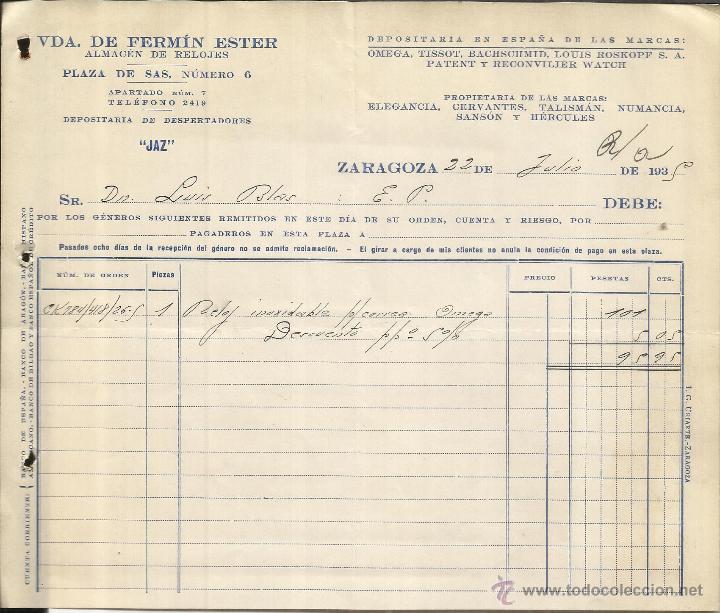 VDA. DE FERMÍN ESTER
ALMACÉN DE RELOJES
PLAZA DE SAS, NÚMERO 6
APARTADO NÚM. 7
TELÉFONO 2419
DEPOSITARIA DE DESPERTADORES
"JAZ"
DEPOSITARIA EN ESPAÑA DE LAS MARCAS:
OMEGA, TISSOT, BACHSCHMID, LOUIS ROSKOPF S. A.
PATENT Y RECONVILIER WATCH
PROPIETARIA DE LAS MARCAS:
ELEGANCIA, CERVANTES, TALISMÁN, NUMANCIA,
SANSÓN Y HÉRCULES
ZARAGOZA 22 DE Julio DE 1935
SR. Dn. Luis Blas : E. P. DEBE:
POR LOS GÉNEROS SIGUIENTES REMITIDOS EN ESTE DÍA DE SU ORDEN, CUENTA Y RIESGO, POR
PAGADEROS EN ESTA PLAZA A
Pasados ocho días de la recepción del género no se admite reclamación. - El girar a cargo de mis clientes no anula la condición de pago en esta plaza.
NÚM. DE ORDEN Piezas PRECIO PESETAS CTS.
1 Reloj inoxidable p/correa Omega 101
Descuento p/pº 5 % 5 05
95 95
CUENTA CORRIENTE: BANCO DE ESPAÑA. - BANCO DE ARAGÓN. - BANCO HISPANO
AMERICANO. - BANCO DE BILBAO Y BANCO ESPAÑOL DE CRÉDITO
I. G. URIARTE.-ZARAGOZA
www.todocoleccion.net